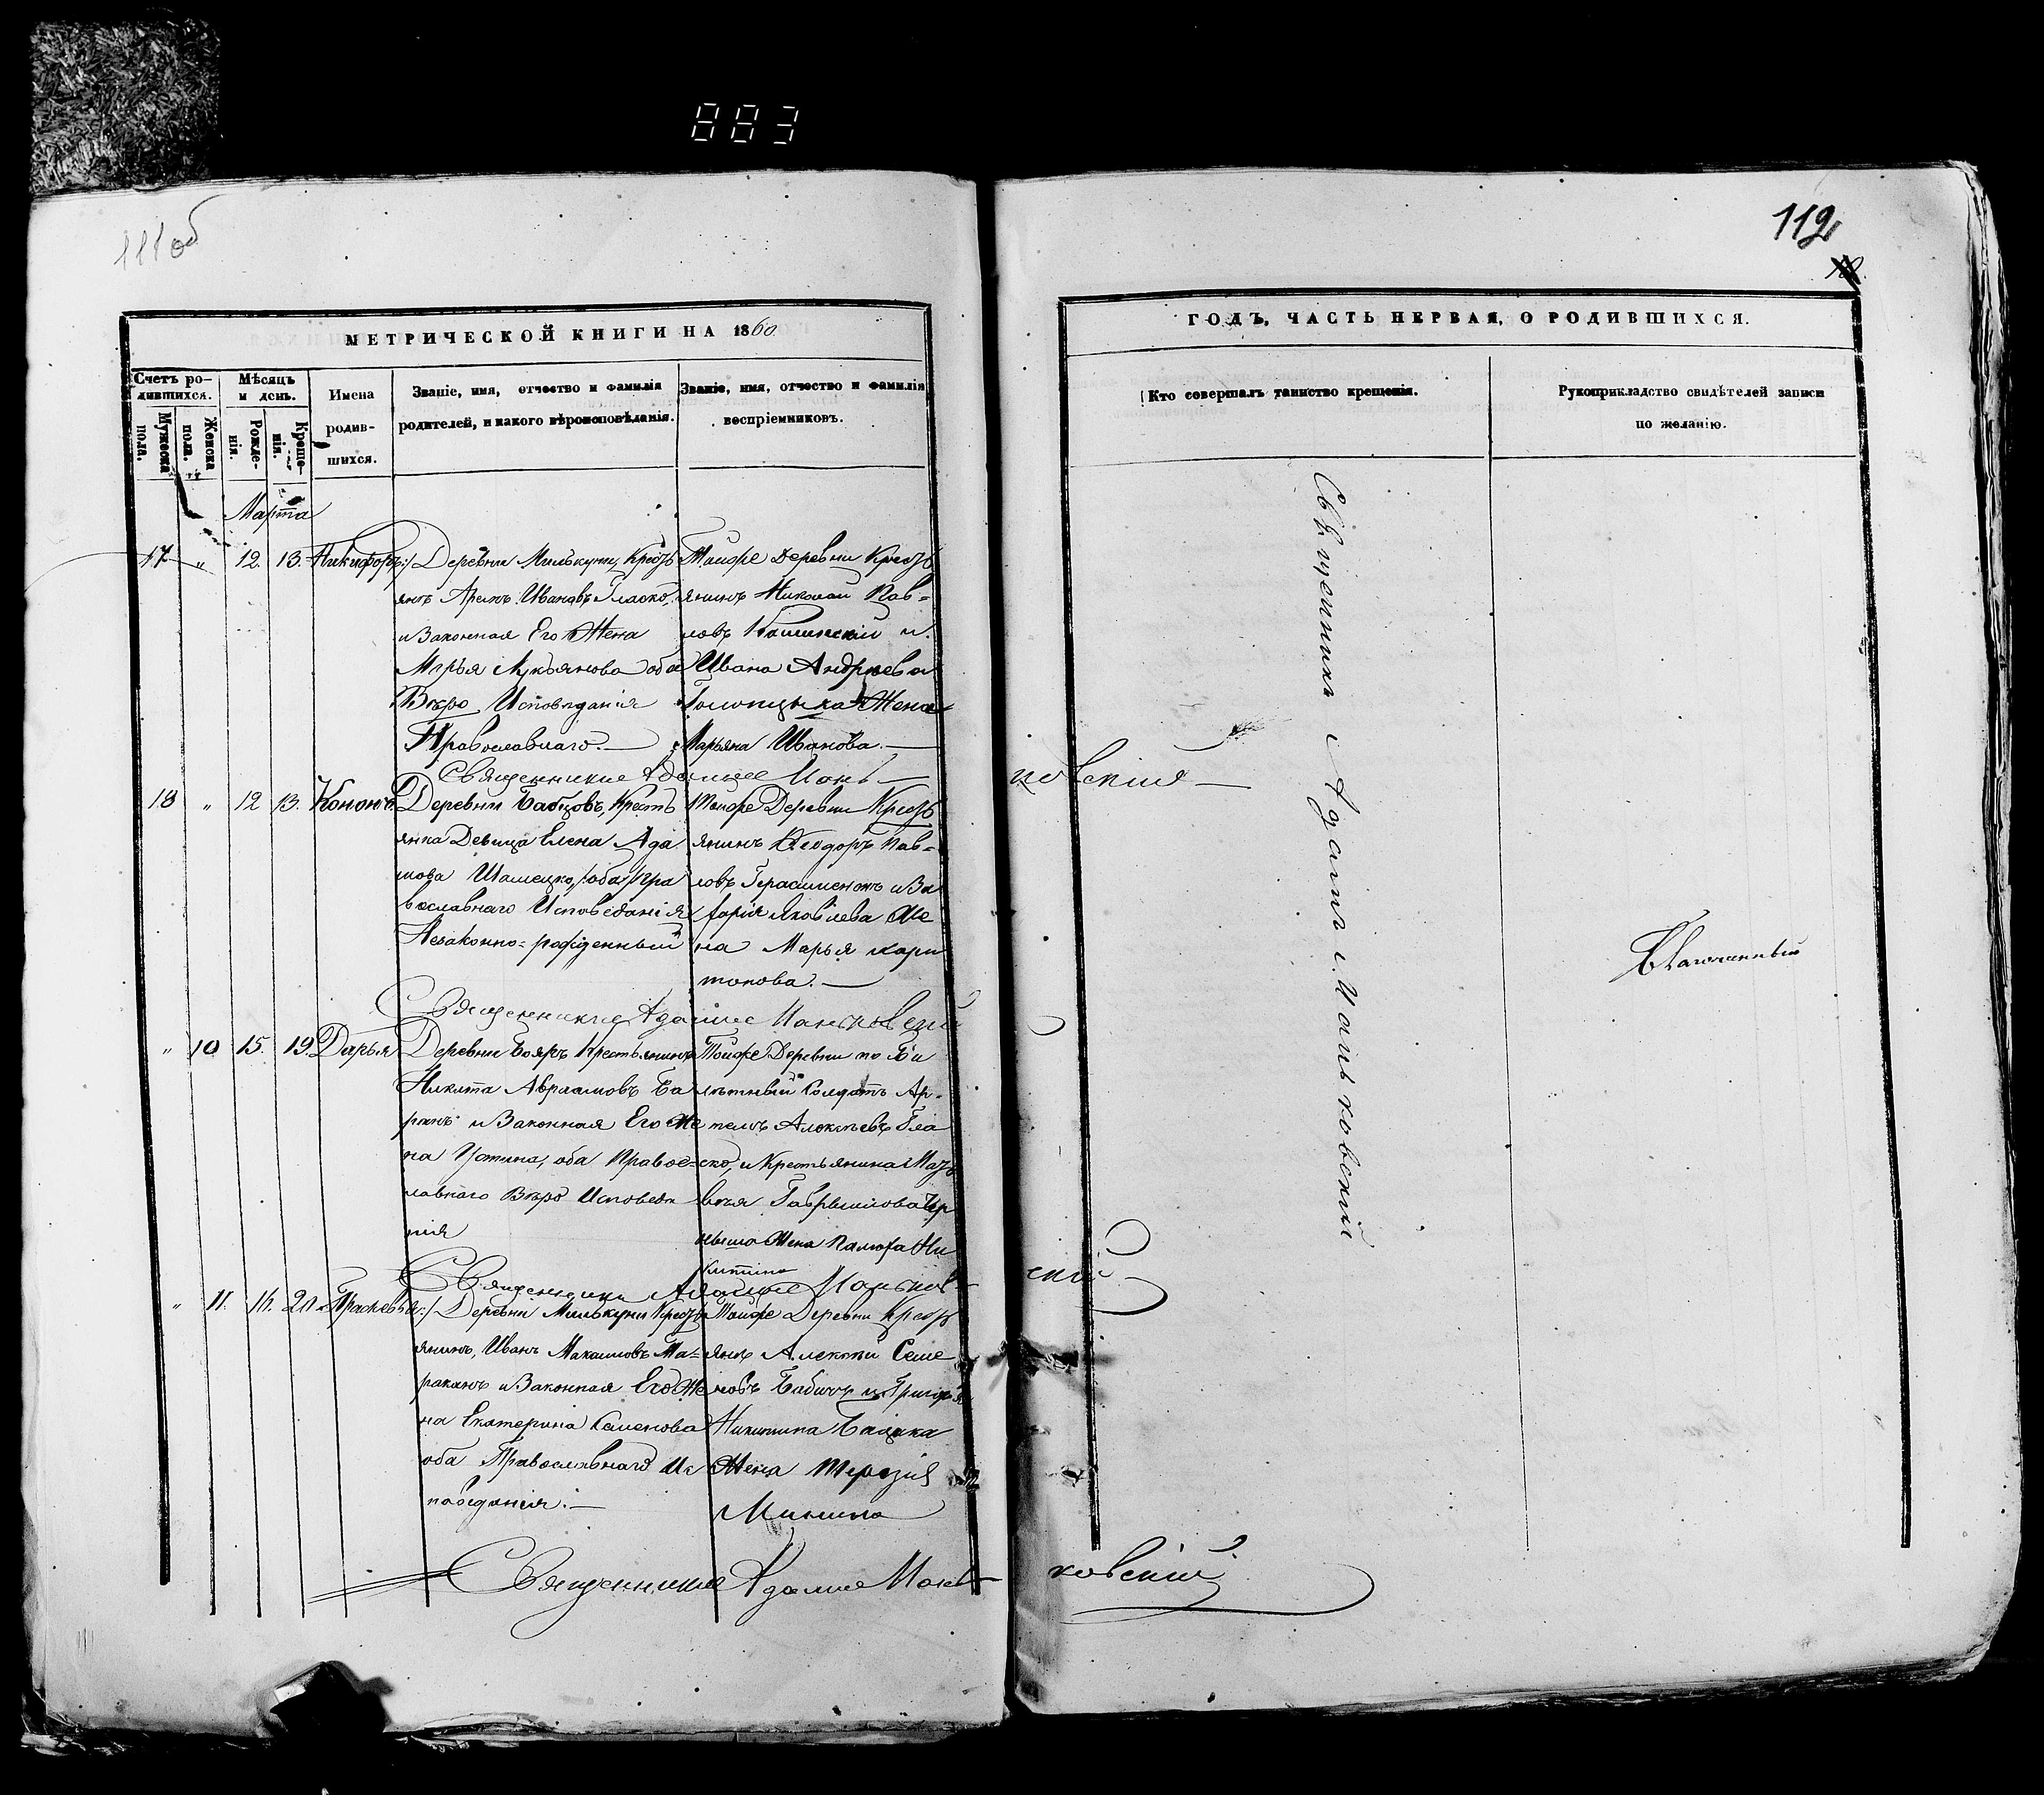 883
111 об
112
МЕТРИЧЕСКОЙ КНИГИ НА 1860
ГОДЪ, ЧАСТЬ ПЕРВАЯ, О РОДИВШИХСЯ.
Счетъ ро-
дившихся.
Мужска
пола.
Женска
пола.
Мѣсяцъ
и день.
Рожде-
нія.
Креще-
нія.
Имена
родив-
шихся.
Званіе, имя, отчество и фамилія
родителей, и какого вѣроисповѣданія.
Званіе, имя, отчество и фамилія
воспріемниковъ.
Кто совершалъ таинство крещенія.
Рукоприкладство свидѣтелей записи
по желанію.
Марта
17 " 12. 13. Никифоръ
Деревни Милькуни, Кресть
янъ Иванов
и Законная Его Жена
Марья Лукьянова оба
Вѣро Исповѣданія
Православнаго.
Тойже Деревни Кресть
янинъ Николай Пав=
ловъ и
Ивана Андреева
Жена
Марьяна Иванова.
Священникъ Адамъ Маньковскій
18 " 12 13. Кононъ
Деревни Крестъ
янка Девица Елена Ада
мова оба Пра
вославнаго Исповеданія
Незаконно=рожденный
Тойже Деревни Кресть
янинъ Ѳеодоръ Пав=
ловъ Герасименокъ и За
харія Яковлева Же
на Марья Хари
тонова.
Священникъ Адамъ Маньковскій
" 10 15. 19. Дарья
Деревни Бояръ Крестьянинъ
Никита Авраамовъ Ба
ранъ и Законная Его Же
на Устина, оба Правос=
лавнаго Вѣро Исповеда
нія
Тойже Деревни
Солдатъ Ар=
темъ Алексѣевъ Гла
ско, и Крестьянина Мат
вѣя Гаврыилова
Жена Ни
китина
Священникъ Адамъ Маньковскій
" 11. 16. 20. Прасковья
Деревни Милькуни Кресть
янинъ, Иванъ Максимовъ Та=
раканъ и Законная Его Же
на Екатерина Семенова
оба Православнаго Ис
поведанія.
Тойже Деревни Кресть
янъ Алексѣй Семе
новъ Бабичъ и Григорія
Никитина
Жена Терезія
Минина
Священникъ Адамъ Маньковскій
Священникъ Адамъ Маньковскій
Благочинный